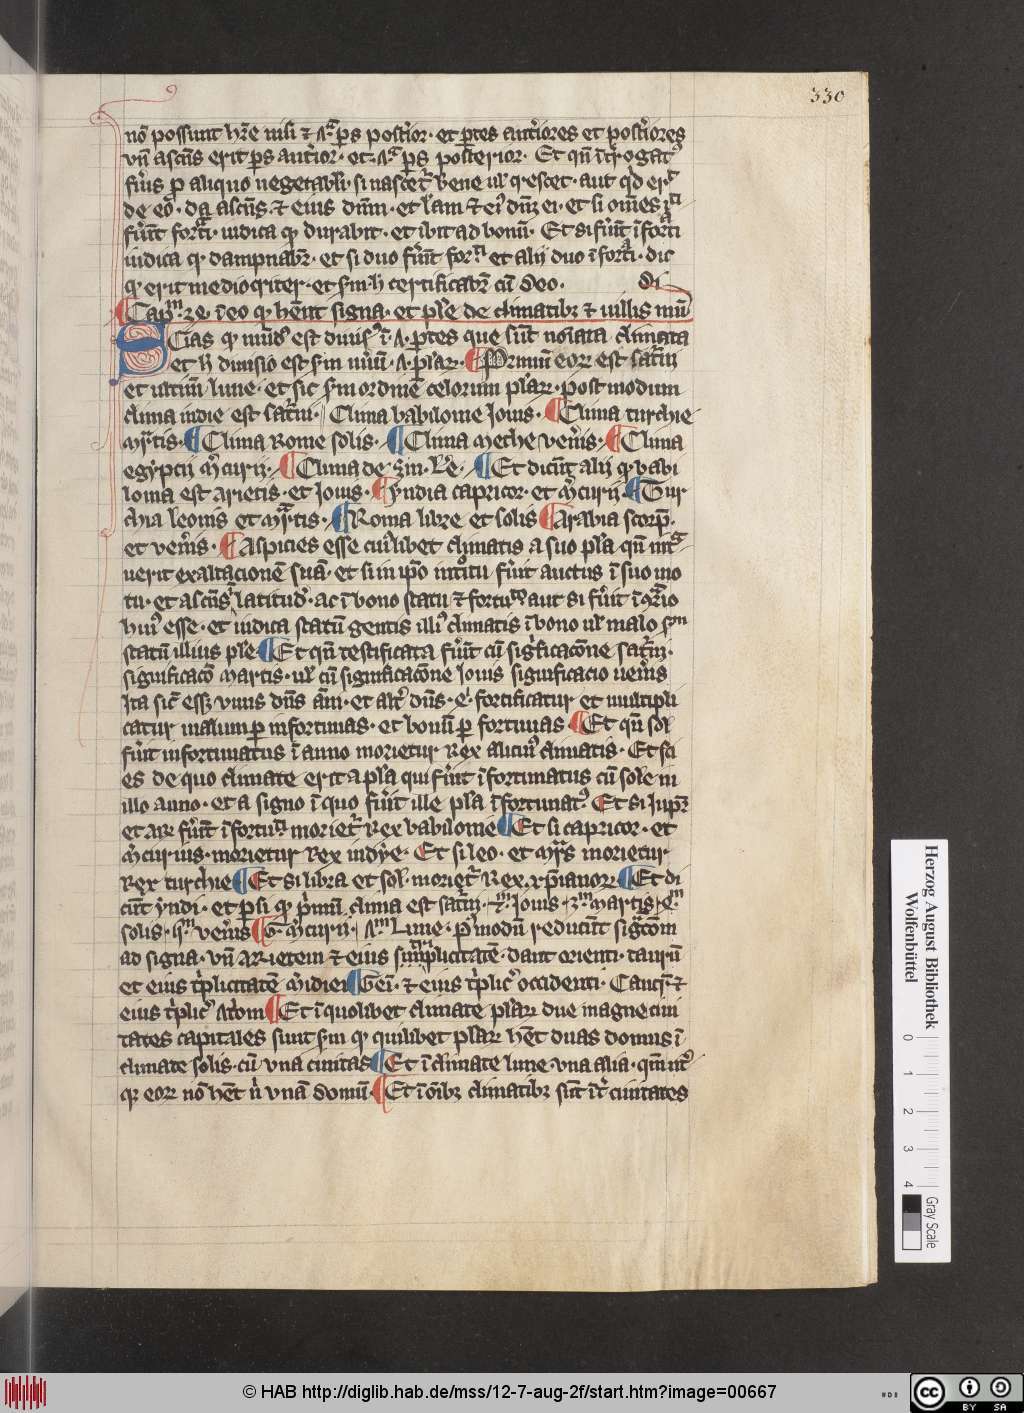 330
nō possunt hr̄e nisi ⁊ 4ᵃ ꝑs postīor · et ꝑtes antīores et postīores
vn̄ ascn̄s erit ꝑs antīor · et 4ᵃ ꝑs posterior · Et qn̄ īt̄rogatꝰ
fūis ꝑ aliquo vegetabli · si nascet̄ bene ul crescet · aut qd erit
de eo · da ascn̄s · ⁊ eius dnm̄ · et lām ⁊ eiꝰ dnm̄ ei · et si om̄es isti
fūit forti · iudica ꝙ durabit · et ibit ad bonū · Et si fūit īforti
iudica ꝙ dampnabr̄ · et si duo fūit forti et alij duo īforti · dic
ꝙ erit mediocriter · et sm̄ h certificabr̄ cū deo · di
Capm̄ 2e · ī eo ꝙ hēnt signa · et ple de climatibꝫ ⁊ uillis mū
Scias ꝙ mūdꝰ est diuisꝰ ī · 7 · ꝑtes que sūt noīata climata
et h diuisio est sm̄ uiuū · 7 · plaꝝ · Primū eoꝝ est saturnī
et ultimū lune · et sic sm̄ ordinē celorum plaꝝ · post modum
clima indie est saturnī · Clima babilonie Iouis · Clima turchie
mr̄tis · Clima Rome solis · Clima meche ven̄is · Clima
egyptij m̄curij · Clima de · Lūe · Et dicūt alij ꝙ babi
lonia est arietis · et Iouis · yndia capricor · et m̄curij Tur
chia leonis et mr̄tis · Roma libre et solis Arabia scorp̄ ·
et ven̄is · Aspicies esse cuiꝰlibet climatis a suo pla qn̄ int̄
uerit exaltacionē suā · et si in ip̄o introitu fūit auctus ī suo mo
tu · et ascn̄s latitudꝰ · ac ī bono statu ⁊ fortunatꝰ aut si fūit ī 9ͬrio
huiꝰ esse · et iudica statū gentis illiꝰ climatis ī bono ul malo sm̄
statū illius ple Et qn̄ testificata fūit cū significacōne saturnī ·
significacō martis · ul cū significacōne Iouis significacio ven̄is
Ita sic̄ esset vnus dn̄s am̄ · et altꝰ dn̄s · et fortificatur et multipli
catur malum ꝑ infortunas · et bonū ꝑ fortunas Et qn̄ sol
fūit infortunatus ī anno morietur Rex alicuiꝰ climatis · Et sci
es de quo climate erit a pla qui fūit īfortunatus cū sole in
illo anno · et a signo ī quo fūit ille pla īfortunatꝰ Et si Iupr̄
et ar fūit īfortuni moriet̄ Rex babilonie Et si capricor · et
m̄curiꝰ · morietur Rex indye · Et si leo · et mr̄s morietur
Rex turchie Et si libra et sol · moriet̄ Rex xp̄ianoꝝ Et di
cūt yndi · et ꝑsi ꝙ pͥmū clima est saturnī · 2ᵐ Iouis · 3ᵐ martis · 4ᵐ
solis · 5ᵐ ven̄is 6 m̄curij · 7ᵐ Lune · pꝰ modū reducūt sigͣ com
ad signa · vn̄ arietem ⁊ eius simplicitatē · dant orienti · taurū
et eius tͥplicitatē m̄idiei Gem̄ · ⁊ eius tͥplicꝰ occidenti · Cancͬ ⁊
eius tͥplicꝰ Altom Et ī quolibet climate plaꝝ due magne ciui
tates capitales sunt sm̄ ꝙ quilibet plaꝝ hēt duas domus ī
climate solis · cū vna ciuitas Et ī climate lune · vna alia · qm̄ ut̄
ꝙ eoꝝ nō hēt nͥ vnā domū · Et ī om̄ibꝫ climatibꝫ sūt īt̄ ciuitates
Herzog August Bibliothek
Wolfenbüttel
0 1 2 3 4
Gray Scale
© HAB http://diglib.hab.de/mss/12-7-aug-2f/start.htm?image=00667
cc BY SA